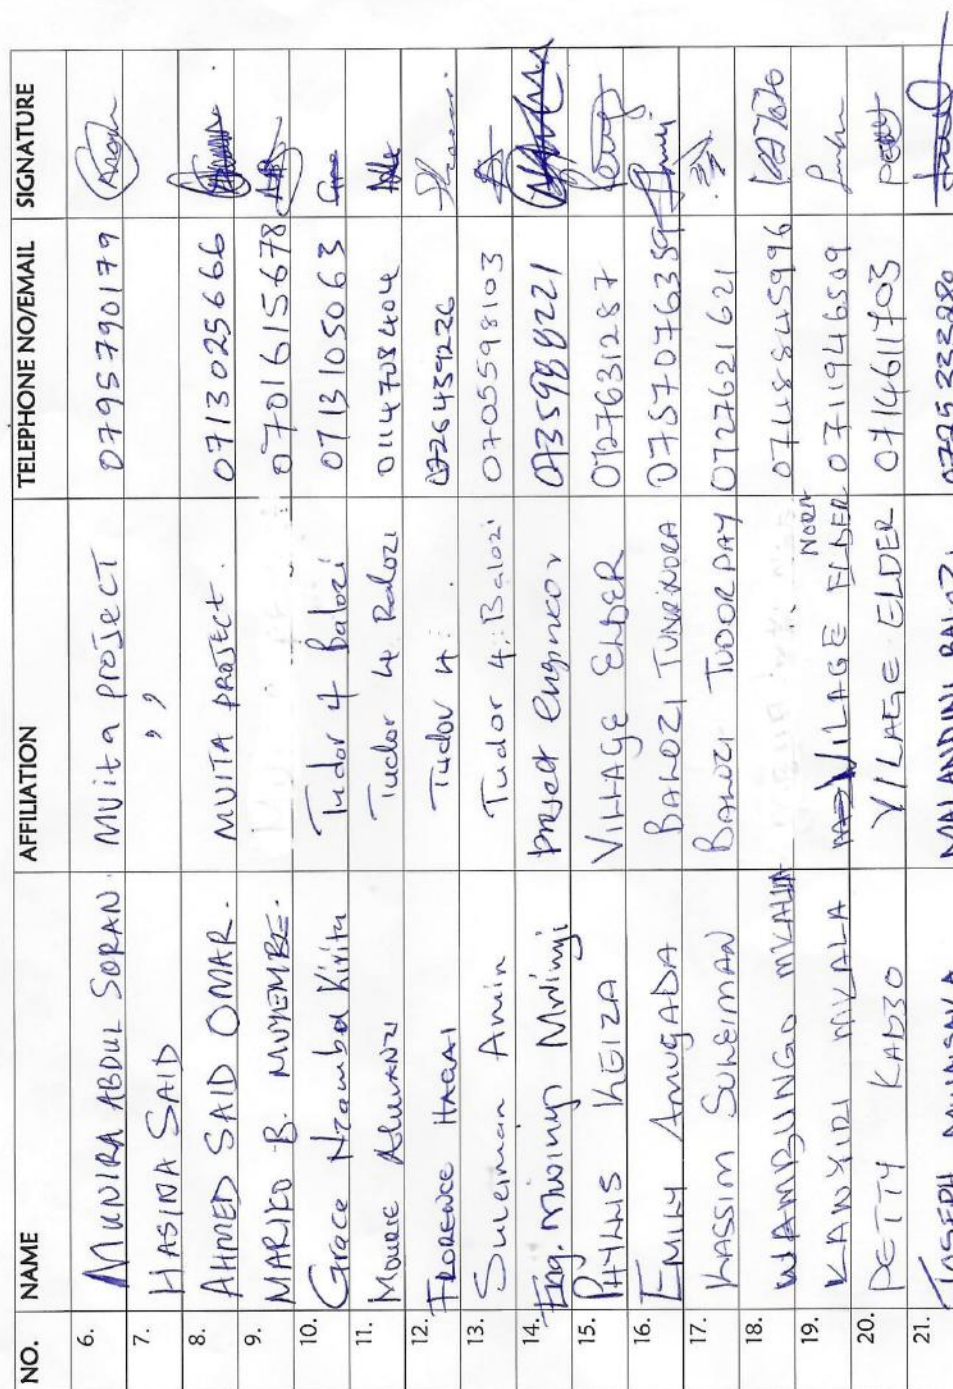 NO. NAME AFFILIATION TELEPHONE NO/EMAIL SIGNATURE
6. MUNIRA ABDUL SORAN Mvita project 0795790179
7. HASINA SAID ,,
8. AHMED SAID OMAR. MVITA PROJECT. 0713025666
9. MARIKO B. 0701615678
10. Grace Nzambal Kivitu Tudor 4 Balozi 0713105063
11. Mourie Tudor 4 Balozi 0114708404
12. FLORENCE Tudor 4. 0726439226
13. Suleiman Amin Tudor 4. Balozi 0705598103
14. Eng. Mwinyi Mwinyi project engineer
15. PHYLLIS KEIZA VILLAGE ELDER 0727631287
16. EMILY AMUGADA BALOZI
17. KASSIM SULEIMAN BALOZI TUDOR DAY 0727621621
18. 0748845996
19. MVALA VILAGE ELDER 0711946509
NOEA
20. PETTY KADZO VILAGE ELDER 0714611703
21. JOSEPH